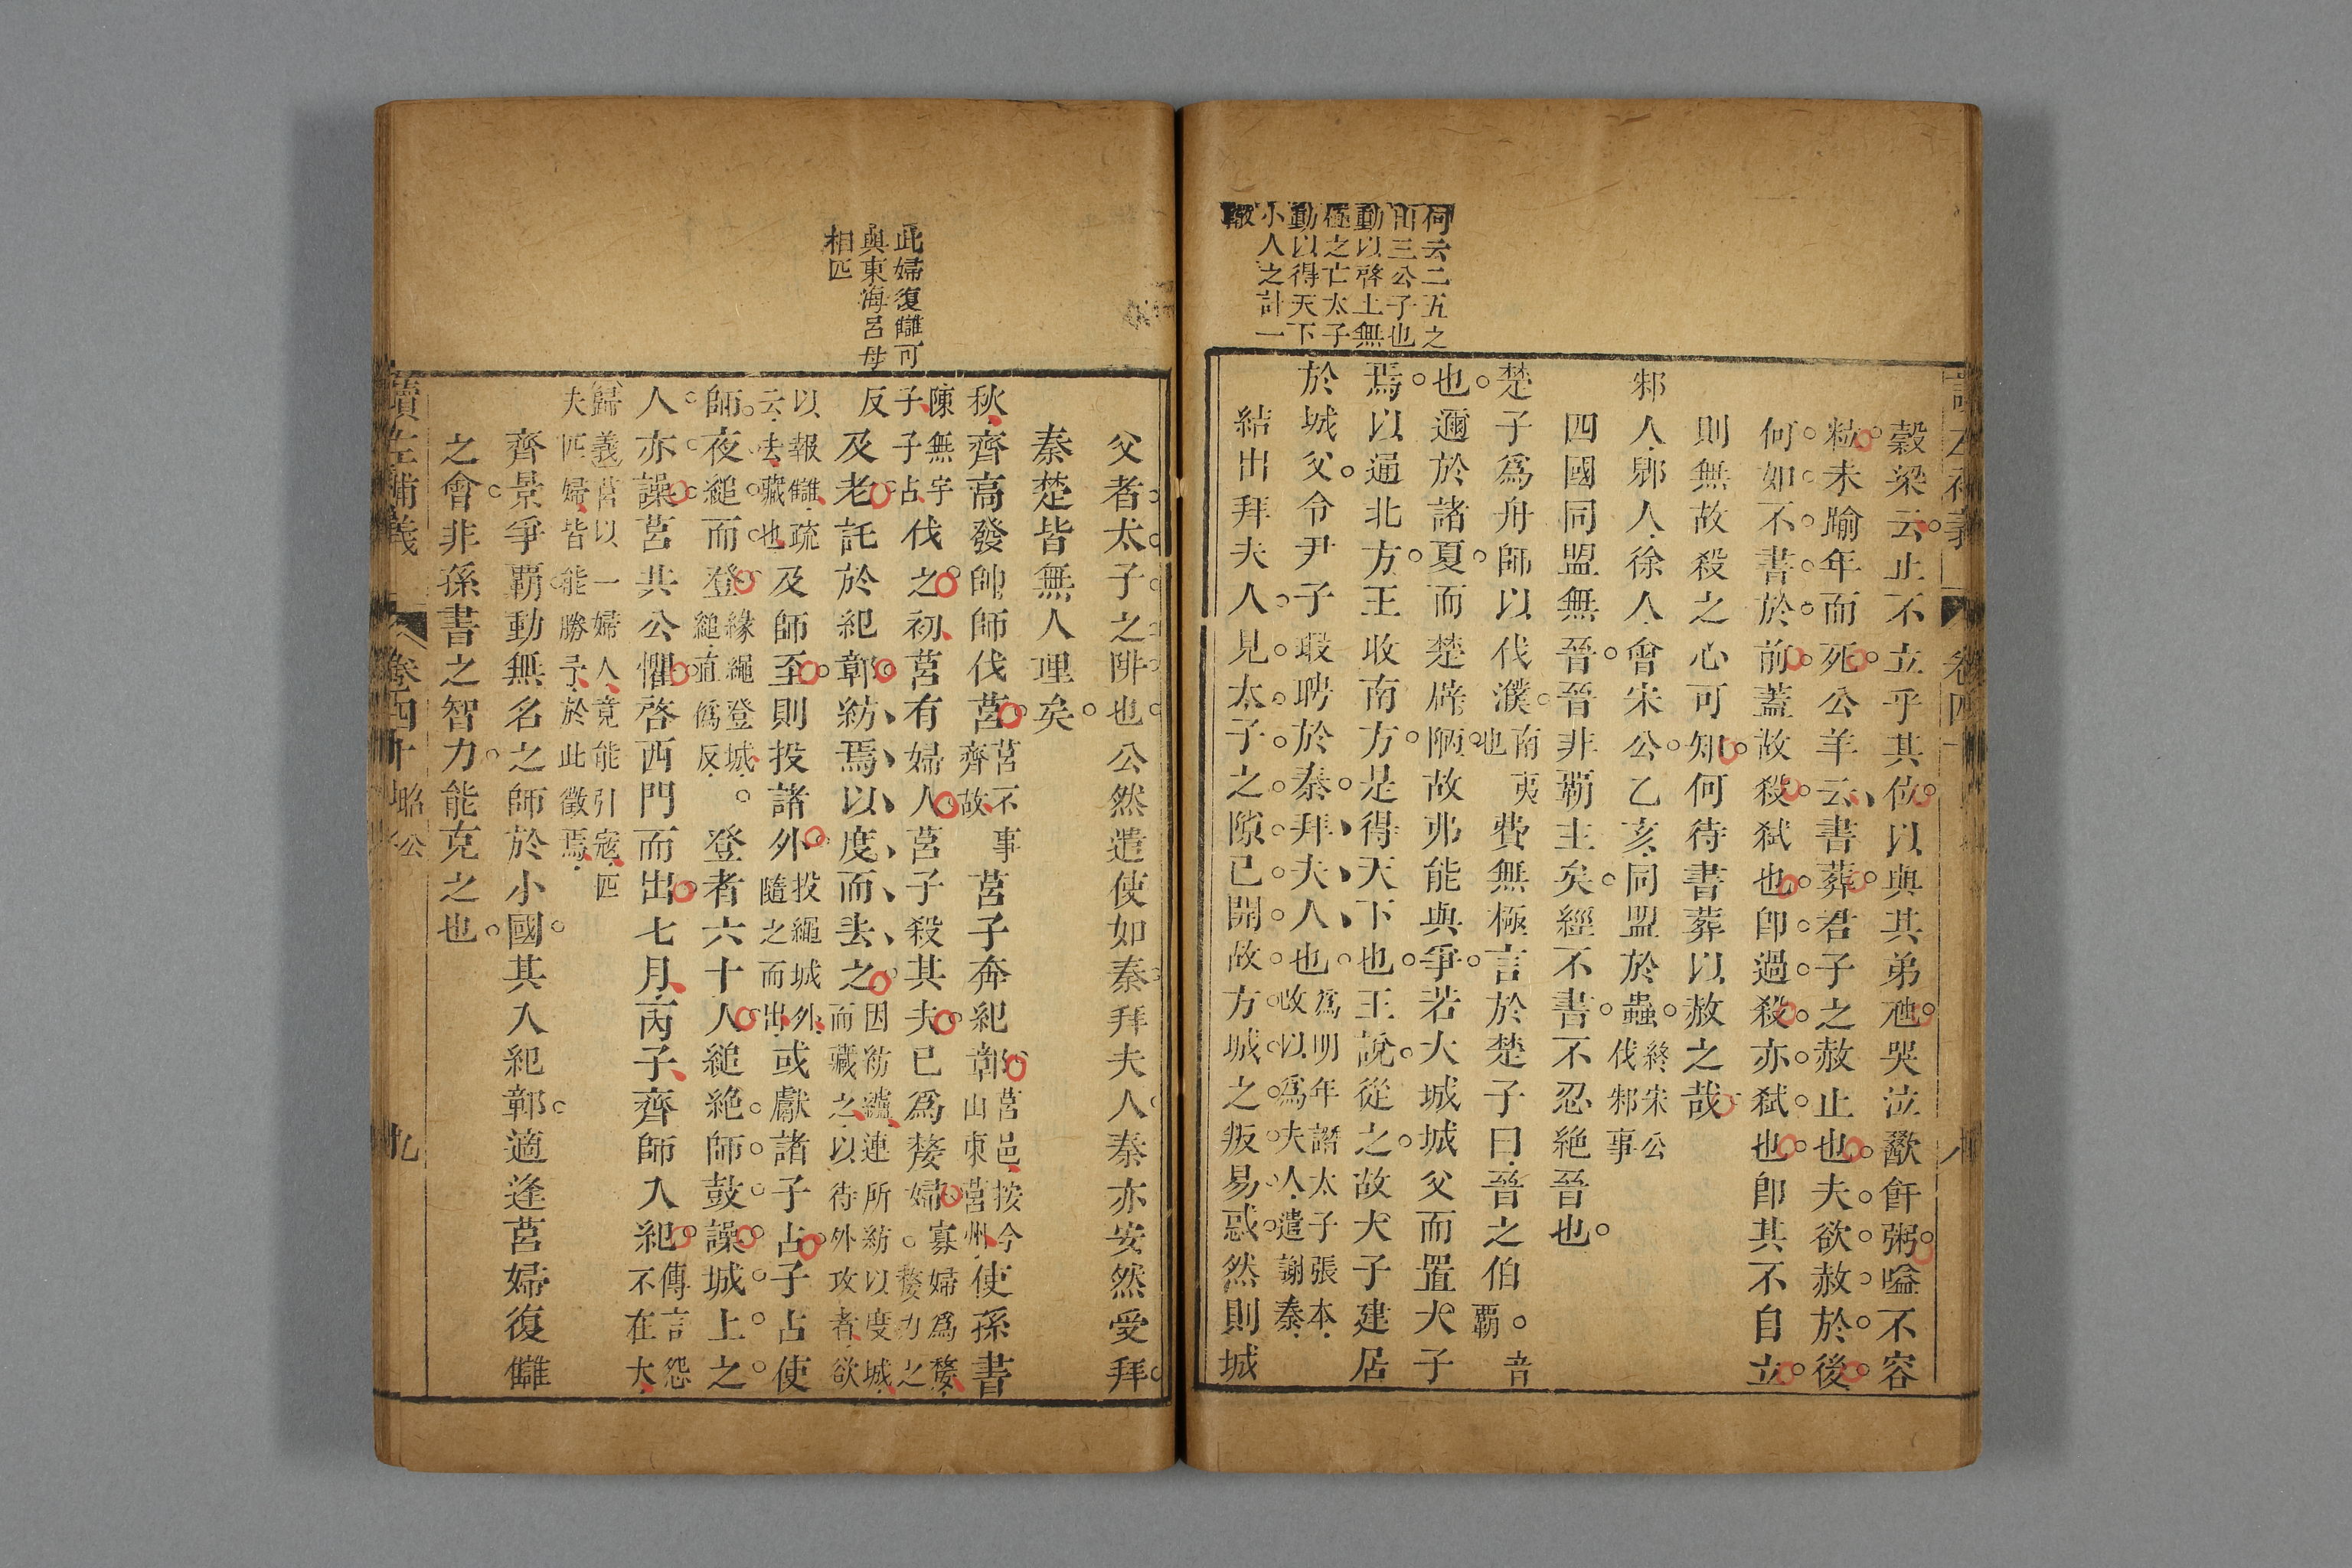 何云二五之
出三公子也
動以啓土無
極之亡太子
動以得天下
小人之計一
轍
穀梁云止不立乎其位以與其弟虺哭泣歠飦粥嗌不容
粒未踰年而死公羊云書葬君子之赦止也夫欲赦於後
何如不書於前蓋故殺弑也卽過殺亦弑也卽其不自立
則無故殺之心可知何待書葬以赦之哉
邾人郳人徐人會宋公乙亥同盟於蟲終宋公伐邾事
四國同盟無晉晉非覇主矣經不書不忍絶晉也
楚子爲舟師以伐濮南夷也費無極言於楚子曰晉之伯音覇
也邇於諸夏而楚辟陋故弗能與爭若大城城父而置大子
焉以通北方王收南方是得天下也王說從之故大子建居
於城父令尹子瑕聘於秦拜夫人也爲明年譖太子張本改以爲夫人遣謝秦
結出拜夫人見太子之隙已開故方城之叛易惑然則城
讀左補義
卷四十
八
父者太子之阱也公然遣使如秦拜夫人秦亦安然受拜
秦楚皆無人理矣
此婦復讎可
與東海呂母
相匹
秋齊高發帥師伐莒莒不事齊故莒子奔紀鄣莒邑按今山東莒州使孫書
陳無宇子子占伐之初莒有婦人莒子殺其夫已爲嫠婦寡婦爲嫠嫠力之
反及老託於紀鄣紡焉以度而去之因紡纑連所紡以度城而藏之以待外攻者欲
以報讎疏云去藏也及師至則投諸外投繩城外隨之而出或獻諸子占子占使
師夜縋而登緣繩登城縋直僞反登者六十人縋絶師鼓譟城上之
人亦譟莒共公懼啓西門而出七月丙子齊師入紀傳言怨不在大
歸義莒以一婦人竟能引寇匹夫匹婦皆能勝予於此徵焉
齊景爭覇動無名之師於小國其入紀鄣適逢莒婦復讎
之會非孫書之智力能克之也
讀左補義
卷四十
昭公
九